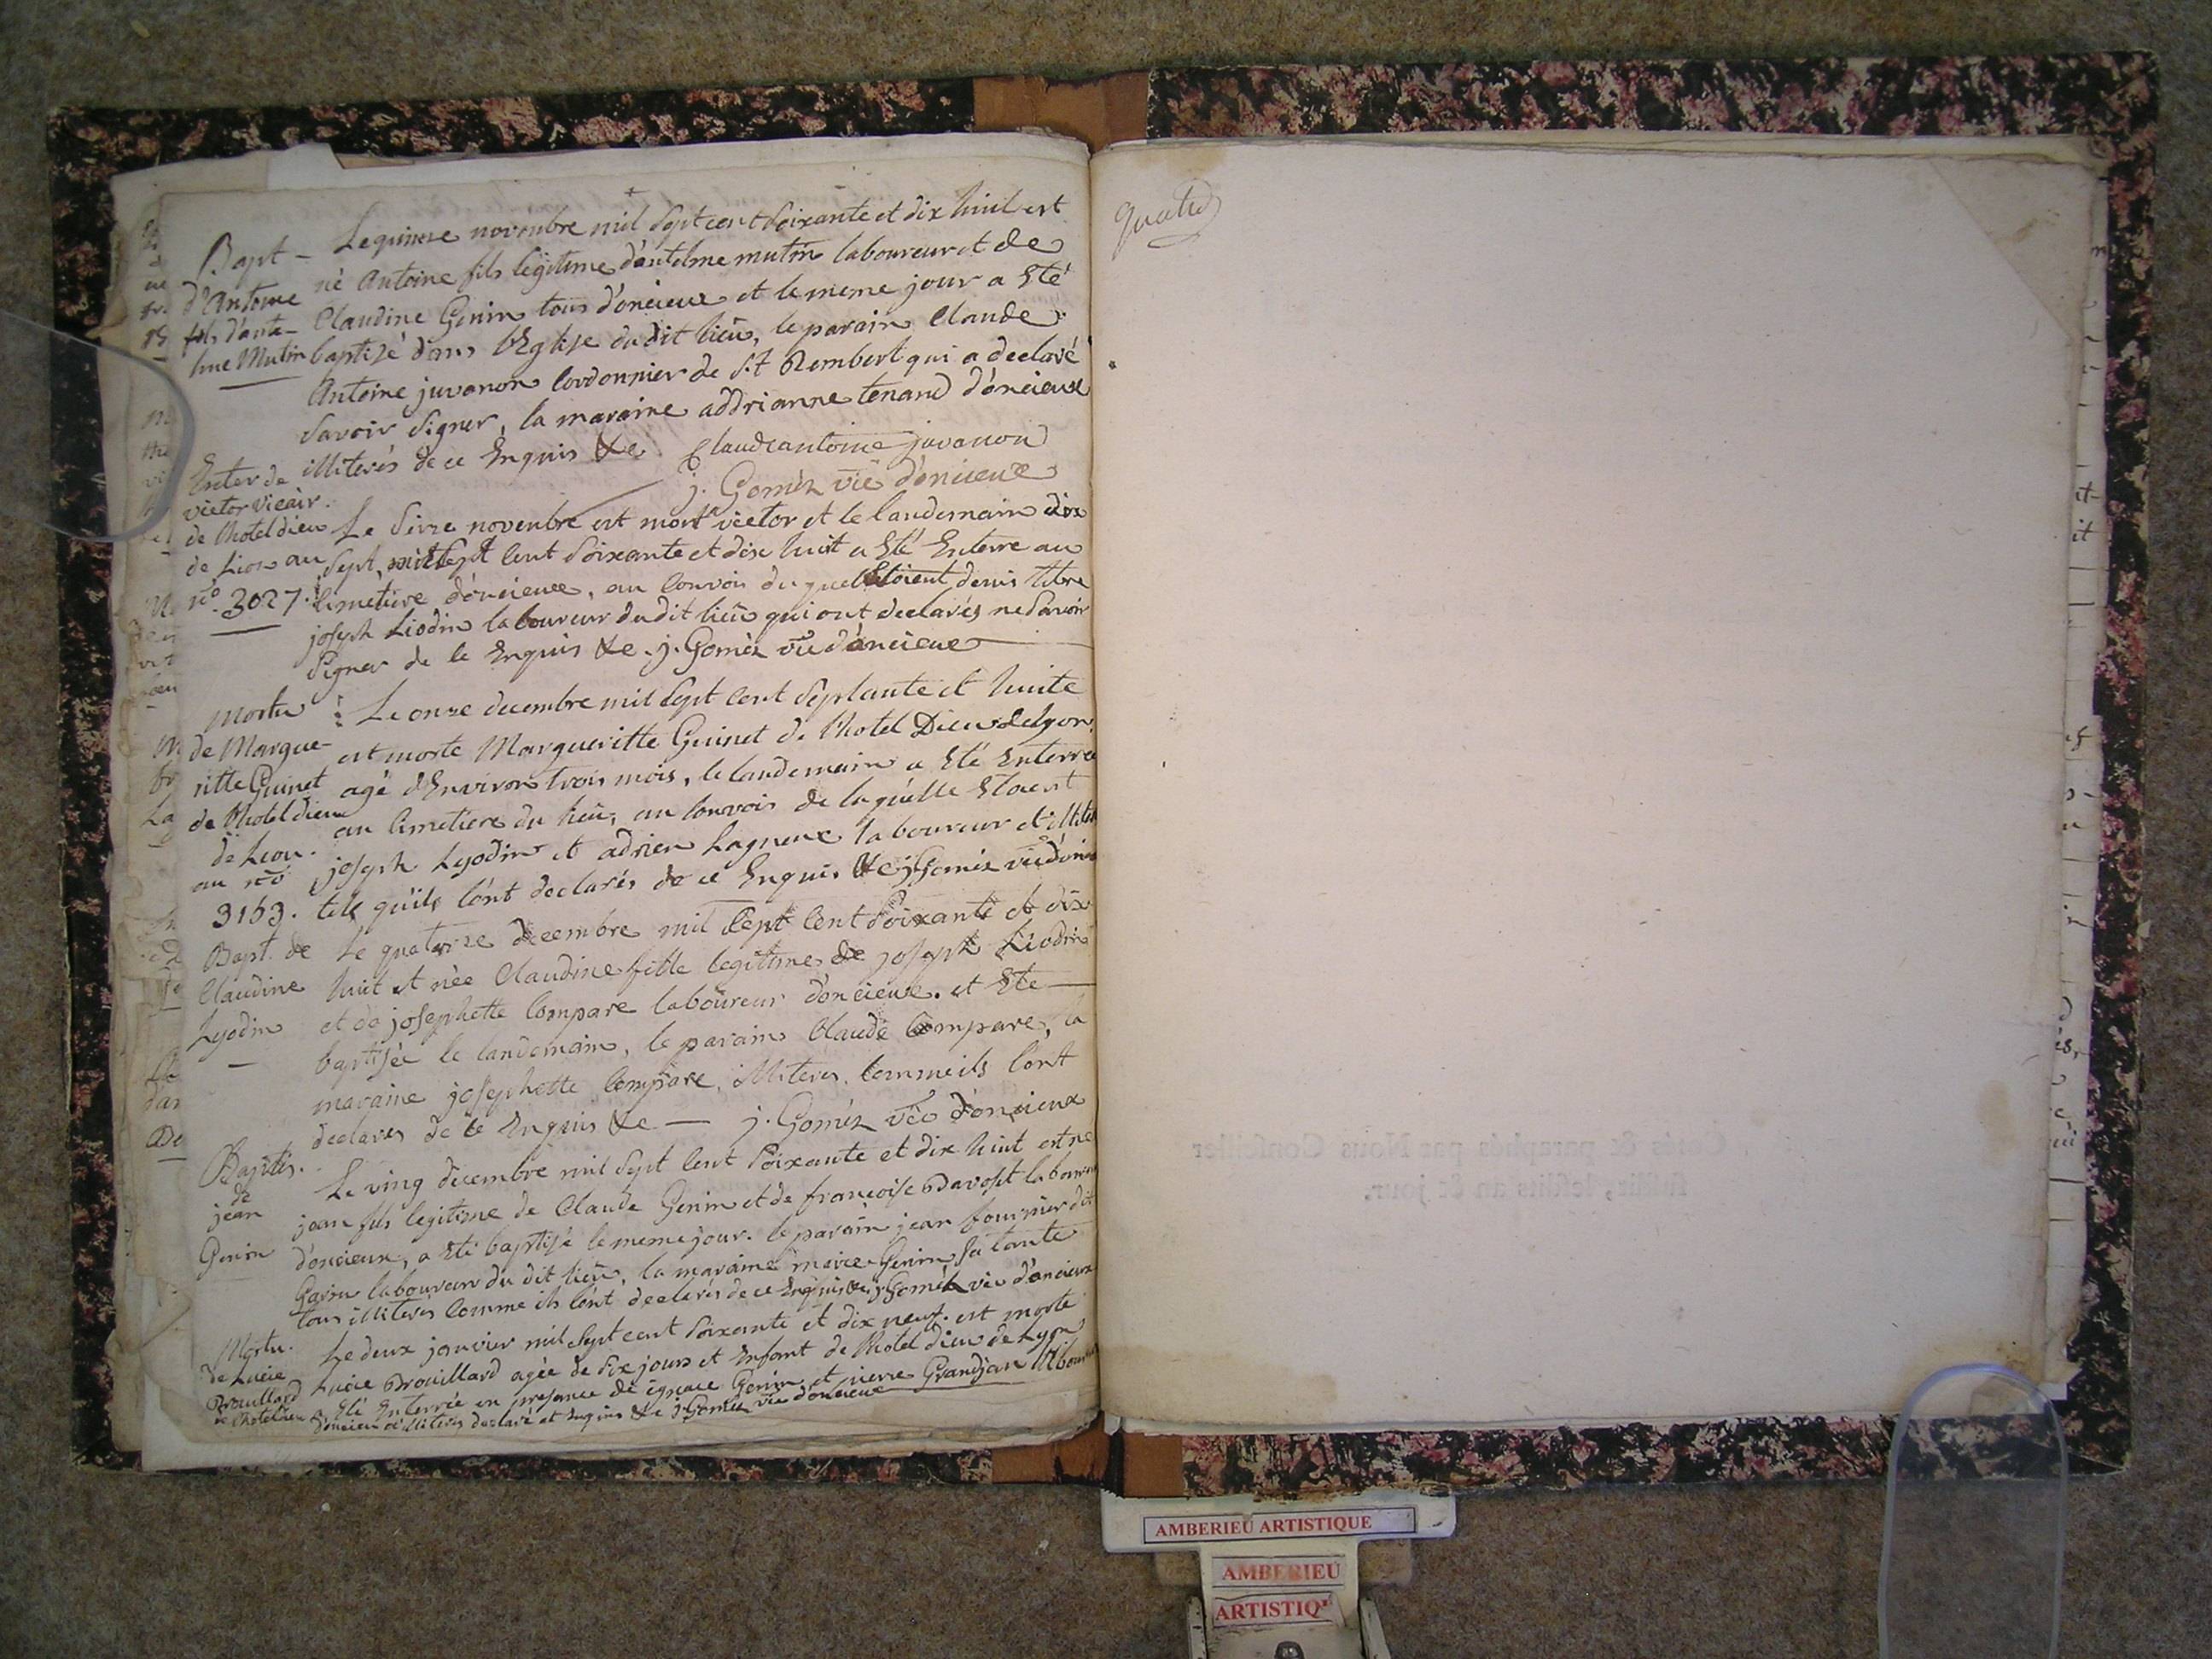 Bapt -
d'Antoine
fils d'ante-
lme Mutin
Le quinze novenbre mil sept cent soixante et dix huit est
né Antoine fils legitime d'antelme mutin laboureur et de
Claudine Genin tous d'oncieux et le meme jour a Eté
baptizé dans l'Eglise du dit lieu, le parain Claude
Antoine juvanon Cordonnier de St Rembert qui a declaré
savoir signer, la maraine addrianne tenand d'oncieux
illiterés de ce Enquis &c. Claude antoine juvanon
j. Goméz vic d'oncieux
Enter de
victor vicair.
de l'hotel dieu
de Lion au
no. 3027.
Le seize novenbre est mort victor et le landemain dix
sept, mil sept cent soixante et dix huit a Eté Enterre au
cimetiere d'oncieux, au convoi du quel Etoient denis
joseph Liodin laboureur du dit lieu qui ont declarés ne savoir
signer de ce Enquis &c. j. Goméz vic d'oncieux
Mortu
de Margue-
ritte Guinet
de l'hotel dieu
de Lion.
au no
3163.
Le onze decembre mil sept cent septante et huite
est morte Margueritte Guinet de l'hotel Dieu de Lyon
agé d'Environ trois mois, le landemain a Eté Enterrée
au cimetiere du lieu, au convois de laquelle Etoent
joseph Lyodin et adrien Lagneux laboureur et
tels qu'ils l'ont declarés de ce Enquis &c j. Goméz vic
Bapt. de
Claudine
Lyodin
Le quatorze decembre mil sept cent soixante et dix
huit est née Claudine fille legitime de joseph Liodin
et de josephette Compare laboureur d'oncieux. et Ete
baptisée le landemain, le parain Claude Compare, la
maraine josephette Compare, illiteres, comme ils l'ont
declares de ce Enquis &c — j. Goméz vic d'oncieux
Baptis.
de
jean
Genin
Le ving decembre mil sept cent soixante et dix huit est né
jean fils legitime de Claude Genin et de francoise Davost laboureur
d'oncieux, a Eté baptisé le meme jour. le parain jean fournier dit
Garin laboureur du dit lieu, la maraine marie Genin sa tante
tous illiterés comme ils l'ont declarés de ce Enquis &c j. Goméz vic d'oncieux
Mortu.
de Lucie
Brouillard
de l'hotel dieu
Le deux janvier mil sept cent soixante et dix neuf. est morte
Lucie Brouillard agée de six jours et Enfant de l'hotel dieu de Lyon
a Eté Enterrée en presance de ignace Genin et pierre Grandjan
d'oncieux illiteres declaré et Enquis &c j. Goméz vic d'oncieux
quatre
& paraphés par Nous Conseiller
lesdits an & jour.
AMBERIEU ARTISTIQUE
AMBERIEU
ARTISTIQ